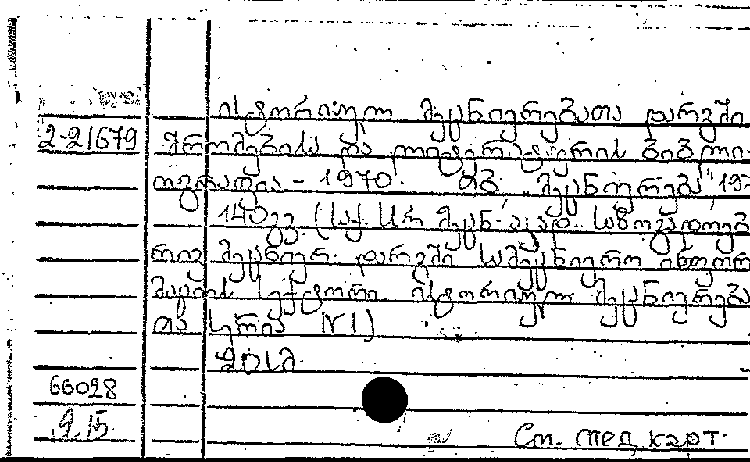 ისტორიულ მეცნიერებათა დარგში
2-21679 შრომებისა და ლიტერატურის ბიბლი-
ოგრაფია - 1970. თბ. "მეცნიერება" 19
140 გვ. (საქ. სსრ მეცნ. აკად. საზოგადოებ
რივ მეცნიერ. დარგში სამეცნიერო ინფორ
მაციის სექტორი. ისტორიულ მეცნიერება
თა სერია N1)
66028
9.15
См. след карт.